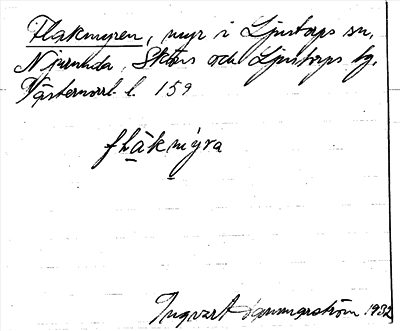 Flakmyren, myr i Ljustorps sn,
Njurunda, Sköns och Ljustorps tg,
Västernorrl. l. 159
flakmyra
Ingvart Hammarström 1932